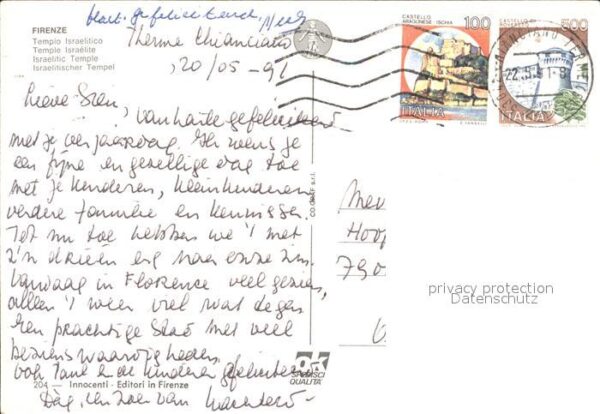 Hart. gefeliciteerd,
FIRENZE
Tempio Israelitico
Temple Israélite
Israelitic Temple
Israelitischer Tempel
Therme Chianciano
20/05-91
CASTELLO ARAGONESE ISCHIA 100
ITALIA
CASTELLO DI ROVERETO 500
ITALIA
CHIANCIANO TERME
22.5.91-8
Lieve Sien,
van harte gefeliciteerd
met je verjaardag. Ik wens je
een fijne en gezellige dag toe
met je kinderen, kleinkinderen
verdere familie en kennissen.
Tot nu toe hebben we 't met
z'n drieën erg naar onze zin.
Vandaag in Florence veel gezien,
allen 't weer viel wat tegen
Een prachtige stad met veel
bezienswaardigheden.
ook tante en de kinderen gefeliciteerd
Dag, en zoen van
CO.GRAF s.r.l.
Mev
Hoo
790
privacy protection
Datenschutz
OK
SADISCI
QUALITA'
204 — Innocenti - Editori in Firenze